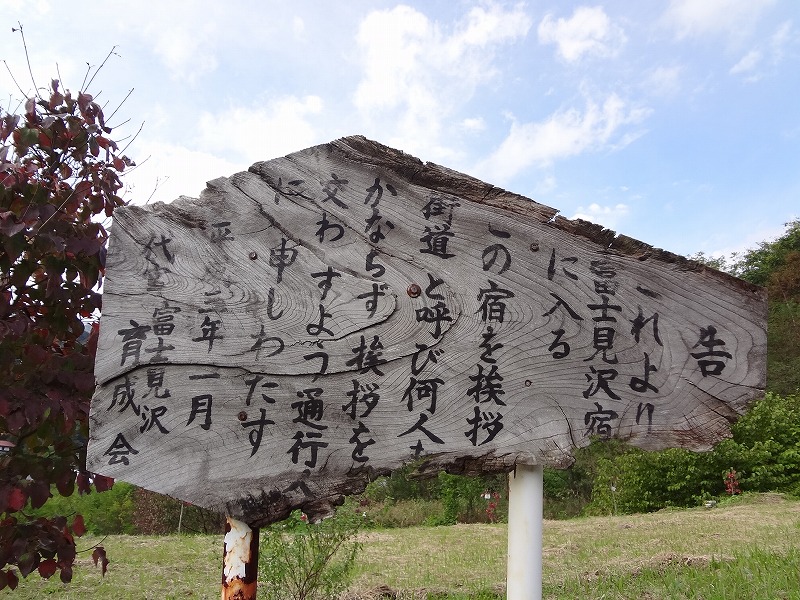 告
これより
富士見沢宿
に入る
この宿を挨拶
街道と呼び何人も
かならず挨拶を
交わすよう通行人
に申しわたす
平成三年一月
代官富士見沢
育成会